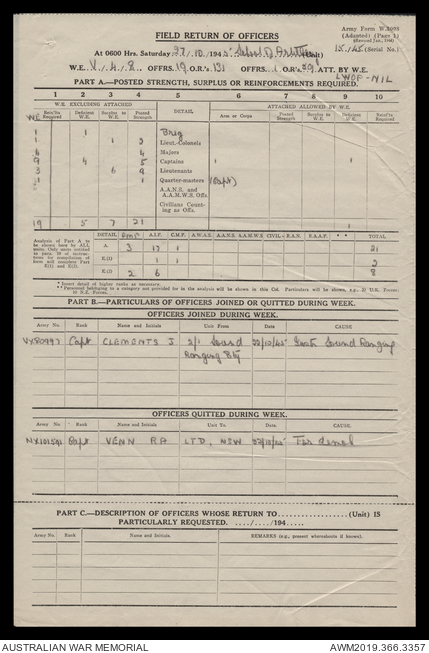 FIELD RETURN OF OFFICERS
Army Form W.3008
(Adapted) (Page 1)
(Revised Jan., 1944)
At 0600 Hrs. Saturday 27/10/1945 (Unit) 15/45 (Serial No.)
W.E. OFFRS. 19 O.R.'s 131 OFFRS. 1 O.R.'s 39 ATT. BY W.E.
LWOP - NIL
PART A.—POSTED STRENGTH, SURPLUS OR REINFORCEMENTS REQUIRED.
1 2 3 4 5 6 7 8 9 10
W.E. EXCLUDING ATTACHED ATTACHED ALLOWED BY W.E.
WE Reinf'ts Required Deficient W.E. Surplus to W.E. Posted Strength DETAIL Arm or Corps Posted Strength Surplus to W.E. Deficient W.E. Reinf'ts Required
1 1 Brig
1 1 Lieut.-Colonels
4 4 Majors
9 4 5 Captains 1 1
3 6 9 Lieutenants
1 1 Quarter-masters (Capt)
A.A.N.S. and A.A.M.W.S. Offs.
Civilians Counting as Offs.
19 5 7 21 1
Analysis of Part A to be shown here by ALL units.
DETAIL A.I.F. C.M.F. A.W.A.S. A.A.N.S. A.A.M.W.S. CIVIL R.A.N. R.A.A.F. * * TOTAL
A. 3 17 1 21
E.(1) 1 1 2
E.(2) 2 6 8
* Insert detail of higher ranks as necessary.
PART B.—PARTICULARS OF OFFICERS JOINED OR QUITTED DURING WEEK.
OFFICERS JOINED DURING WEEK.
Army No. Rank Name and Initials Unit From Date CAUSE
VX80997 Capt CLEMENTS J 2/1 Sound Ranging Bty 22/10/45 Sound Ranging
OFFICERS QUITTED DURING WEEK.
Army No. Rank Name and Initials Unit To Date CAUSE
NX101591 Capt VENN RA LTD, NSW
PART C.—DESCRIPTION OF OFFICERS WHOSE RETURN TO.................... (Unit) IS
PARTICULARLY REQUESTED. ..../..../194.....
Army No. Rank Name and Initials. REMARKS (e.g., present whereabouts if known).
AUSTRALIAN WAR MEMORIAL AWM2019.366.3357